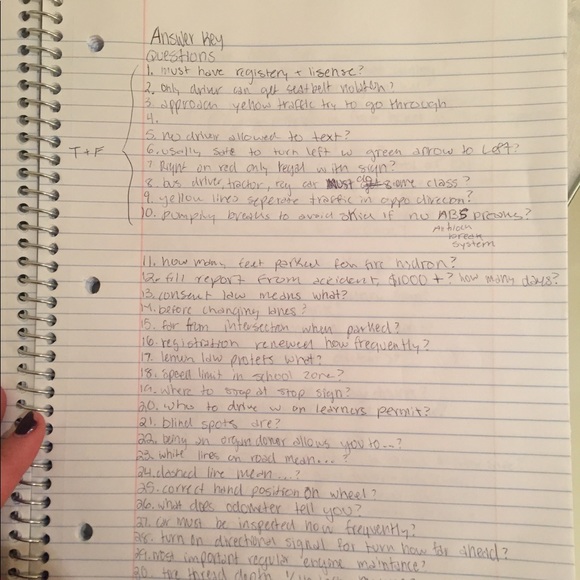 Answer Key
Questions
1. must have registery + lisense?
2. only driver can get seatbelt
3. approach yellow traffic try to go through
4.
T + F
5. no driver allowed to text?
6. usually safe to turn left w green arrow to left?
7. Right on red only legal with sign?
8. bus driver, tractor, reg car must same class?
9. yellow lines seperate traffic in oppo direcon?
10. pumping breaks to avoid skid if no ABS
break
system
11. how many feet parked from fire hydron?
12. fill report from accident, $1000 +? how many days?
13. consent law means what?
14. before changing lanes?
15. far from intersection when parked?
16. registration renewed how frequently?
17. lemon law protets what?
18. speed limit in school zone?
19. where to stop at stop sign?
20. who to drive w on learners permit?
21. blind spots are?
22. being an organ doner allows you to...?
23. white lines on road mean...?
24. dashed line mean...?
25. correct hand position on wheel?
26. what does odometer tell you?
27. car must be inspected how frequently?
28. turn on directional signal for turn how far ahead?
29. most important regular engine maintance?
30. tire thread depth